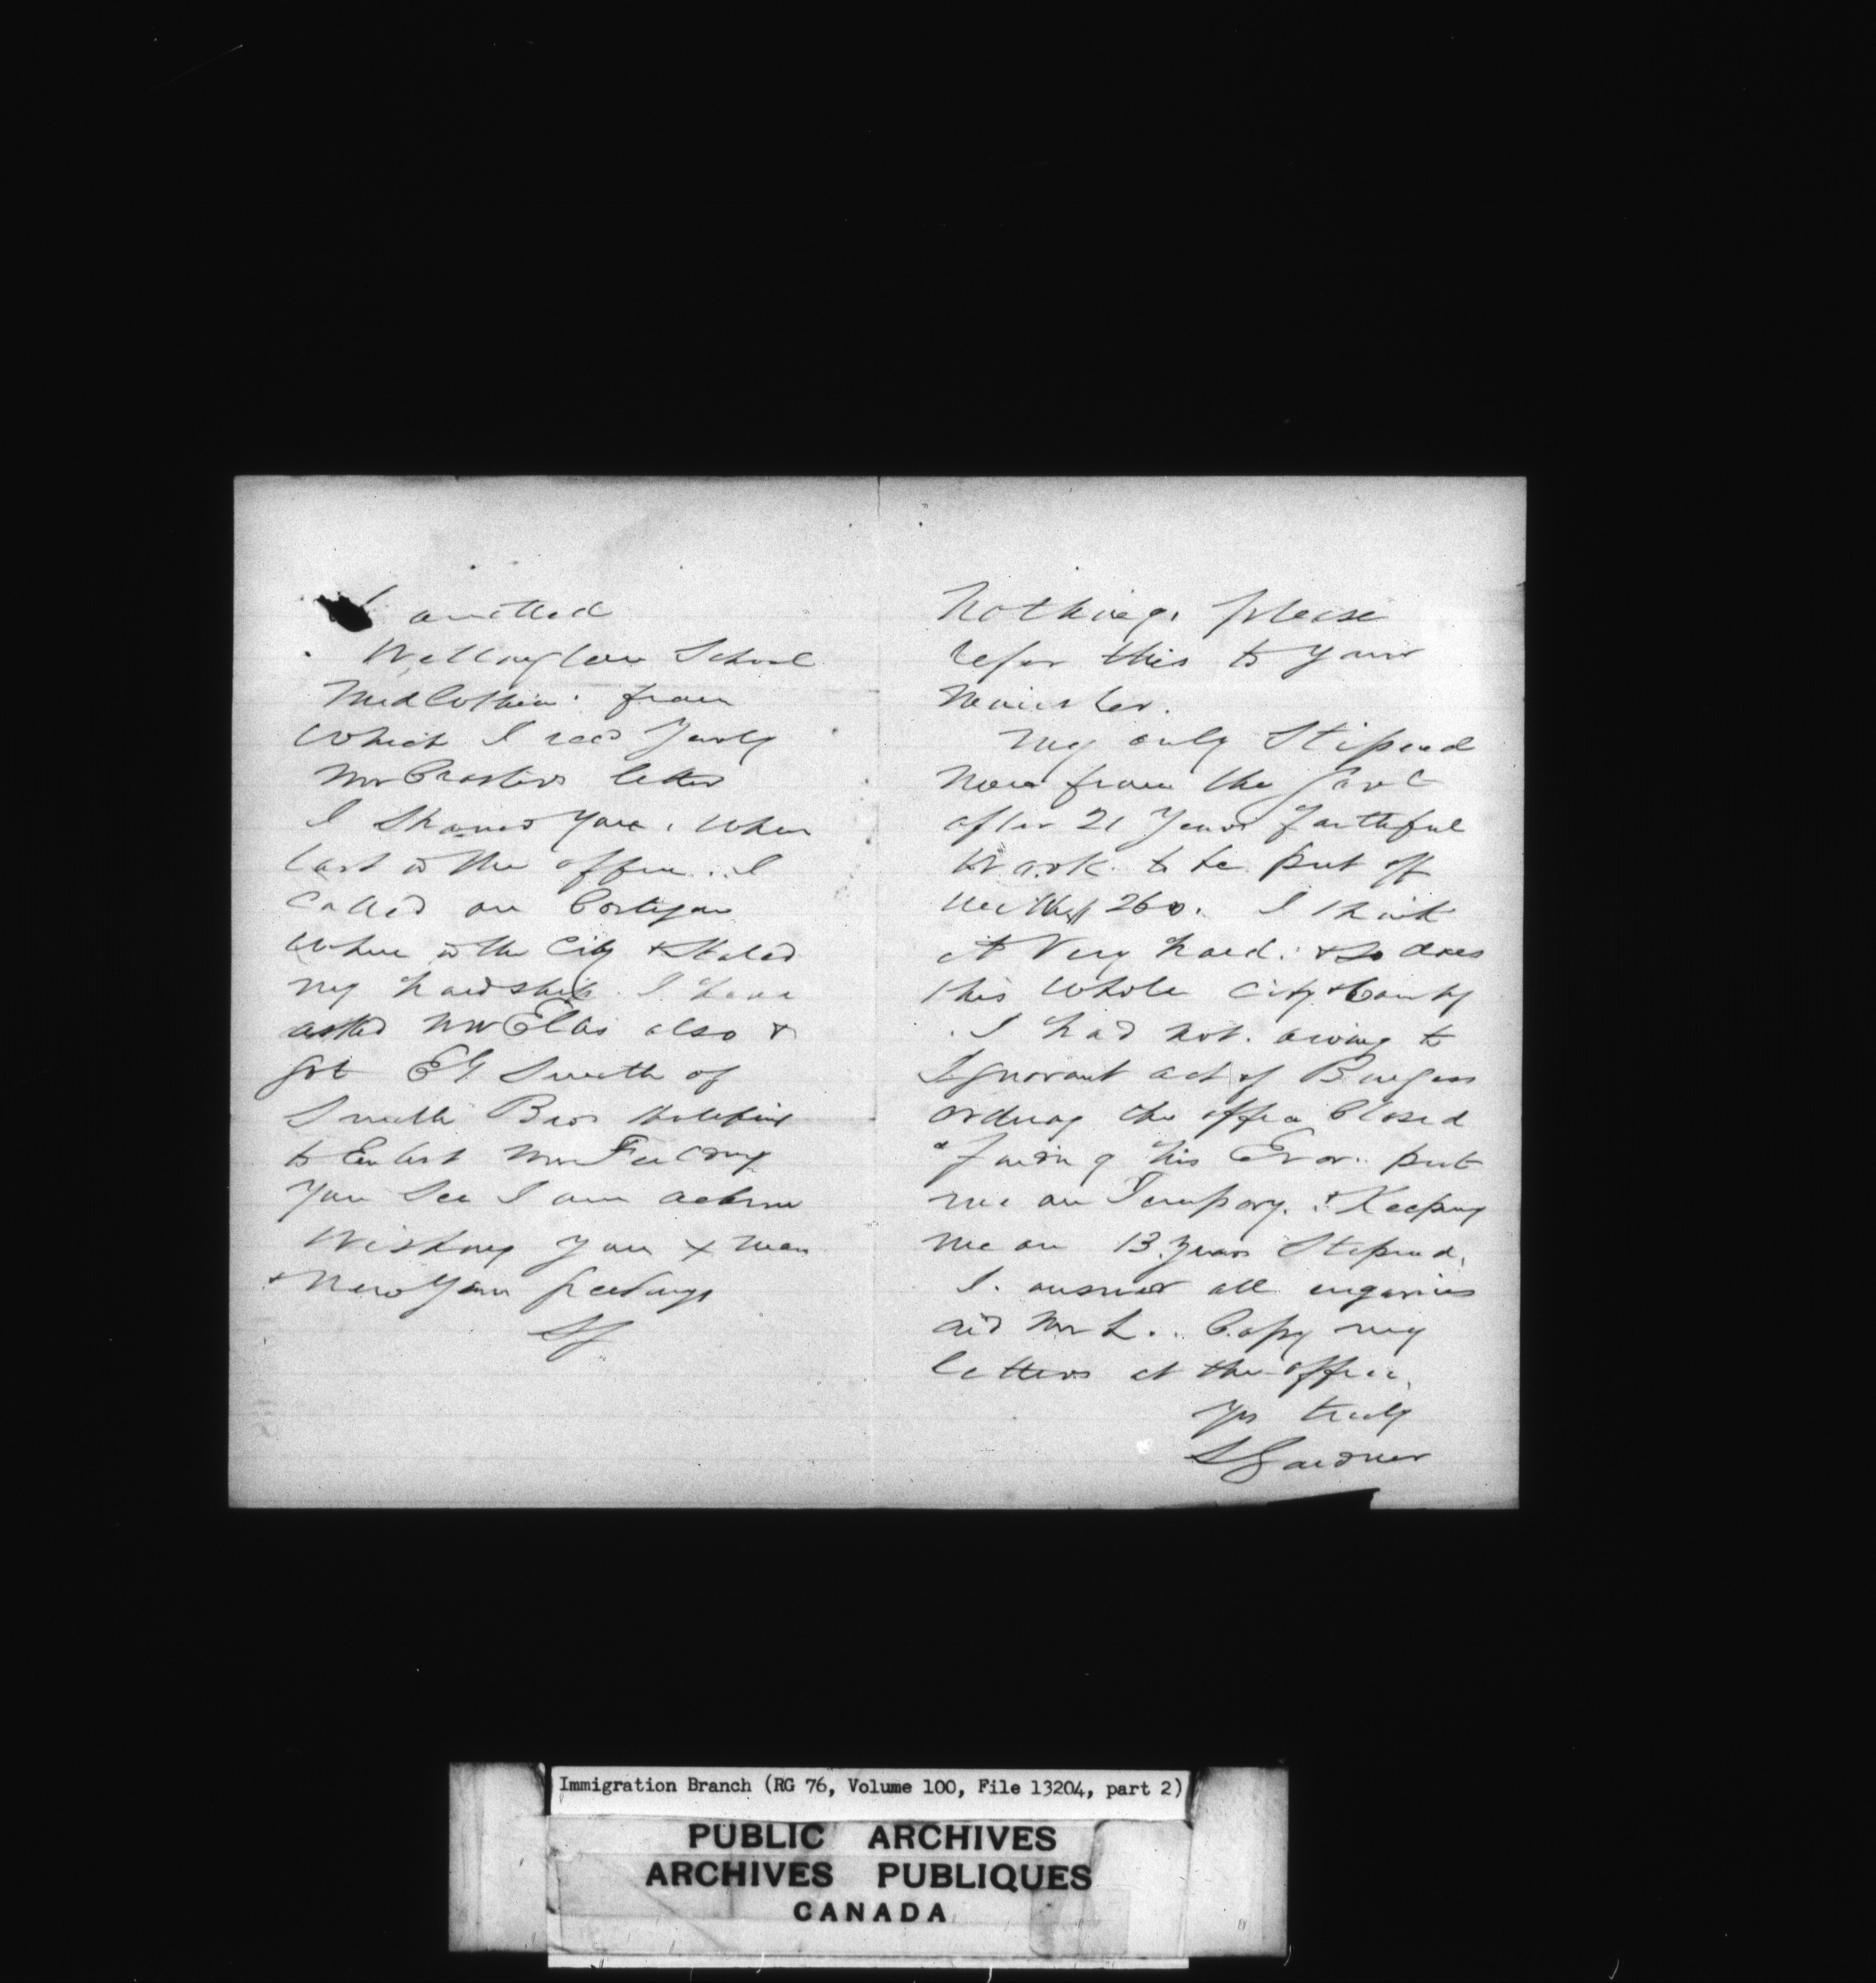 I omitted
Wellington School
Midlothian from
Which I recd Yearly
Mr letter
I Showed You. When
last in the office.. I
Called on Costigan
When in the City & Stated
my hardship I have
asked Mr Ellis also &
got EG Smith of
Smith Bros
to Enlist Mr Fielding
You See I am active
Wishing You X mas
& New Year greetings
SG
Nothing. please
refer this to Your
Minister.
My only Stipend
Now from the Govt
after 21 Years Faithful
Work. to be put off
with 260. I think
it Very hard. & so does
this Whole City & County
. I had not. owing to
Ignorant act of Burgess
ordering the office Closed
& Finding his Error. put
me on Tempory. & Keeping
me on 13 years Stipend.
I. answer all enquiries
aid Mr L.. Copy my
letters at the office.
Yrs truly
S Gardner
Immigration Branch (RG 76, Volume 100, File 13204, part 2)
PUBLIC ARCHIVES
ARCHIVES PUBLIQUES
CANADA